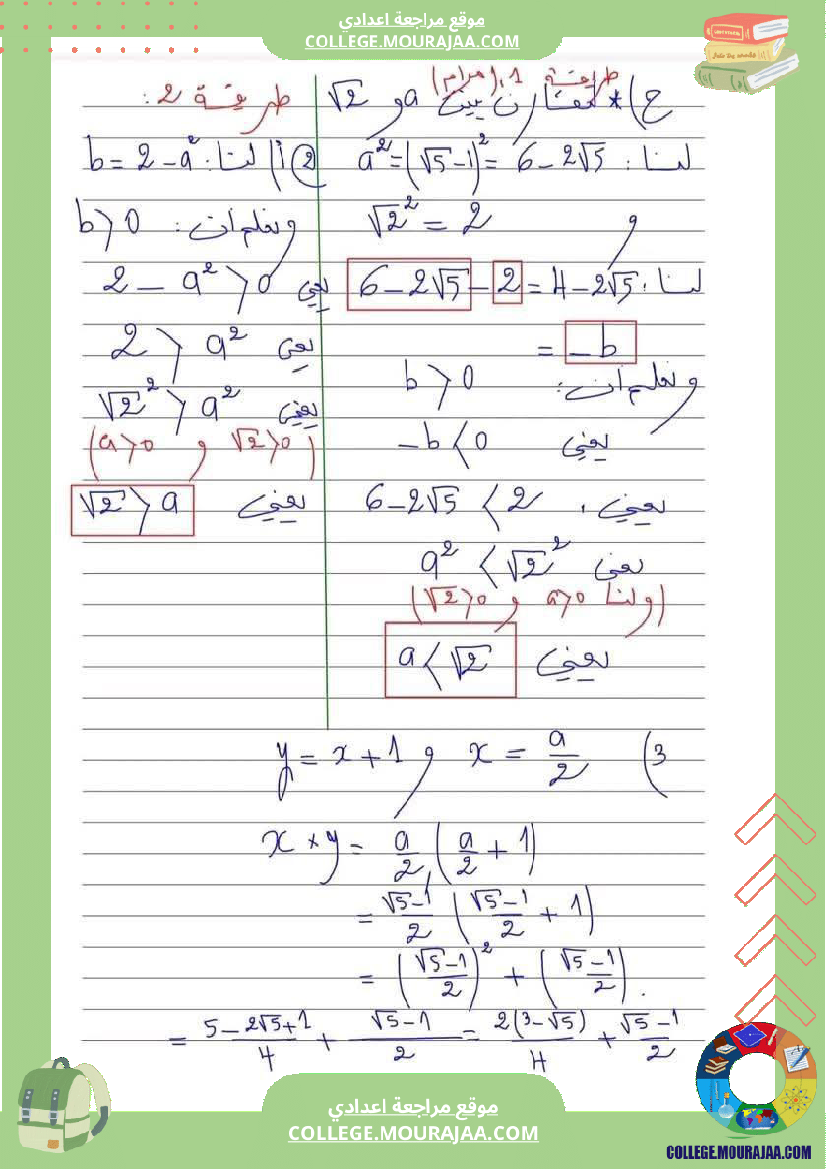 موقع مراجعة اعدادي
COLLEGE.MOURAJAA.COM
ج) * نقارن بين a و √2
طريقة 1 (مرام)
لنا : a² = (√5 - 1)² = 6 - 2√5
و √2² = 2
لنا : 6 - 2√5 - 2 = 4 - 2√5
= -b
ونعلم أن : b > 0
يعني -b < 0
يعني 6 - 2√5 < 2
يعني a² < √2²
(ولنا a>0 و √2>0)
يعني a < √2
طريقة 2 :
2) أ) لنا : b = 2 - a²
ونعلم أن : b > 0
يعني 2 - a² > 0
يعني 2 > a²
يعني √2² > a²
(√2>0 و a>0)
يعني √2 > a
3) x = a/2 و y = x + 1
x × y = a/2 (a/2 + 1)
= (√5-1)/2 ((√5-1)/2 + 1)
= ((√5-1)/2)² + ((√5-1)/2).
= (5 - 2√5 + 1)/4 + (√5-1)/2 = 2(3-√5)/4 + (√5-1)/2
موقع مراجعة اعدادي
COLLEGE.MOURAJAA.COM
COLLEGE.MOURAJAA.COM